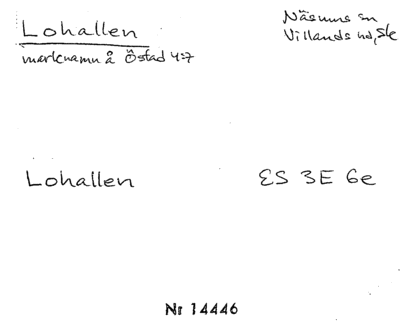 Lohallen
Näsums sn
Villands hd, Sk
marknamn å Östad 4:7
Lohallen
ES 3E 6e
Nr 14446